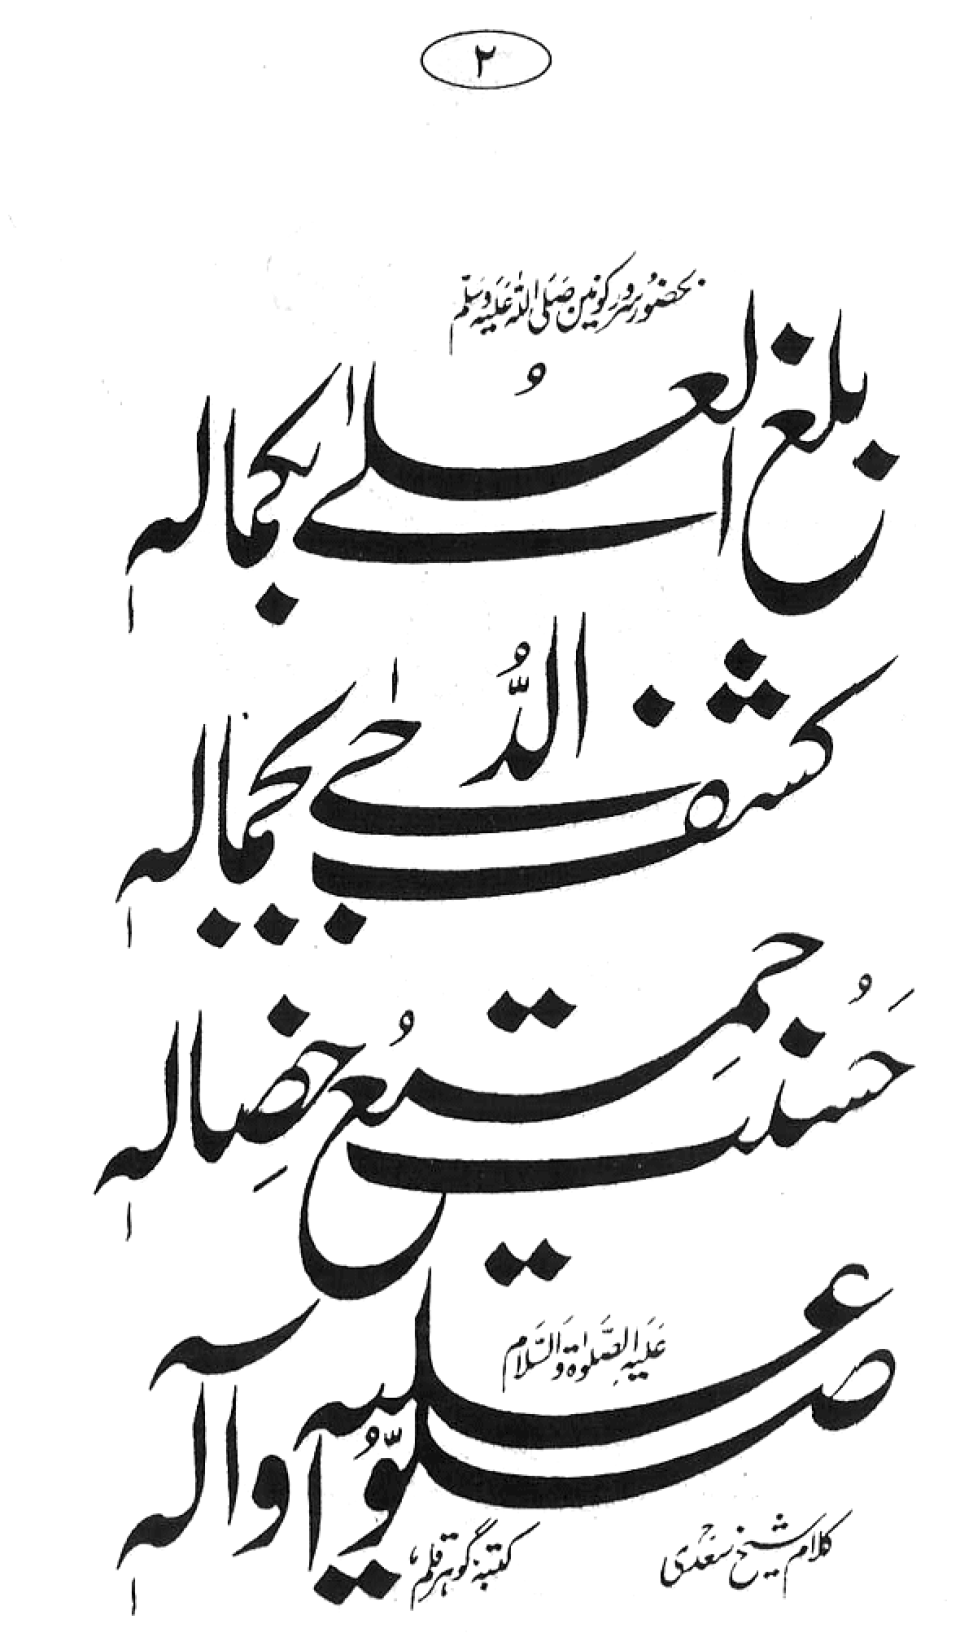 ۲
بحضور سرور کونین صَلَّی اللہُ عَلَیْہِ وَسَلَّم
بلغ العُلےٰ بکمالہٖ
کشف الدُّجےٰ بجمالہٖ
حَسُنَت جمِیعُ خِصالہٖ
صلّوُا علیہ وآلہٖ
عَلَیہِ الصَّلوٰۃ وَالسَّلام
کلام شیخ سعدیؒ
کتبہٗ گوہر قلم